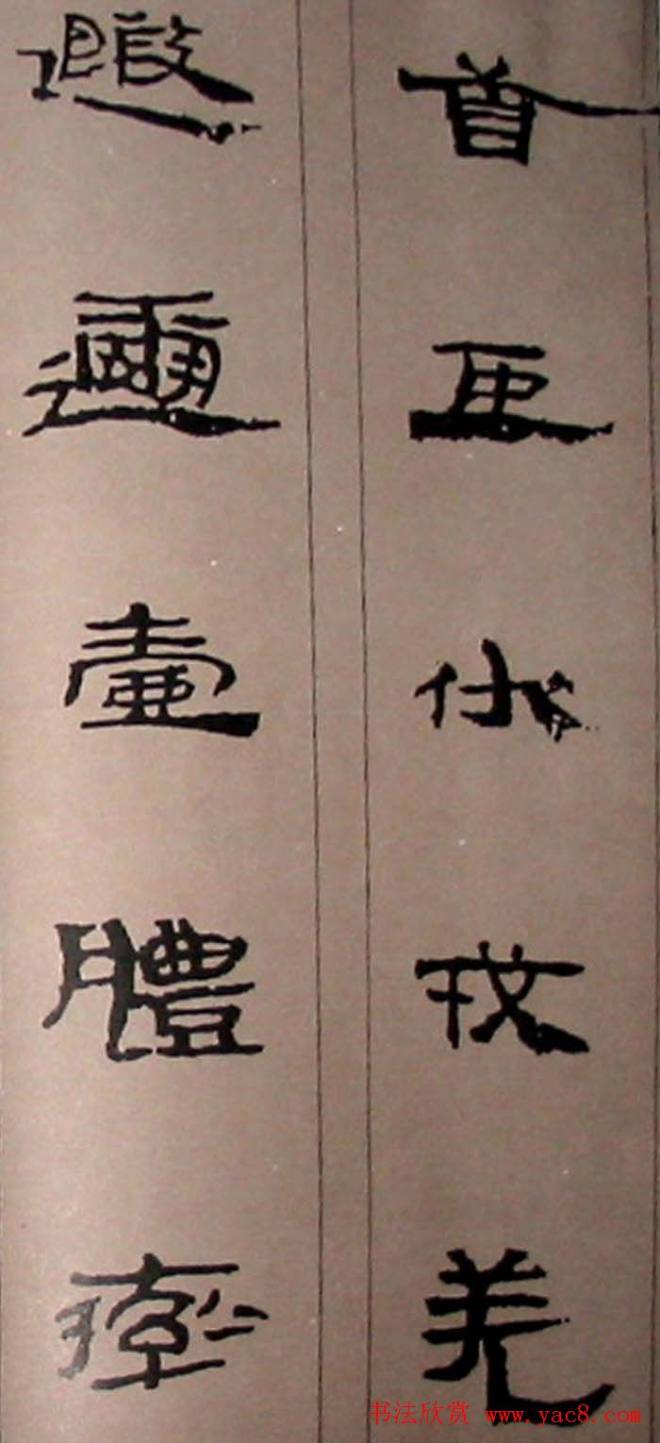 首臣伏戎羌
遐邇壹體率
书法欣赏 www.yac8.com